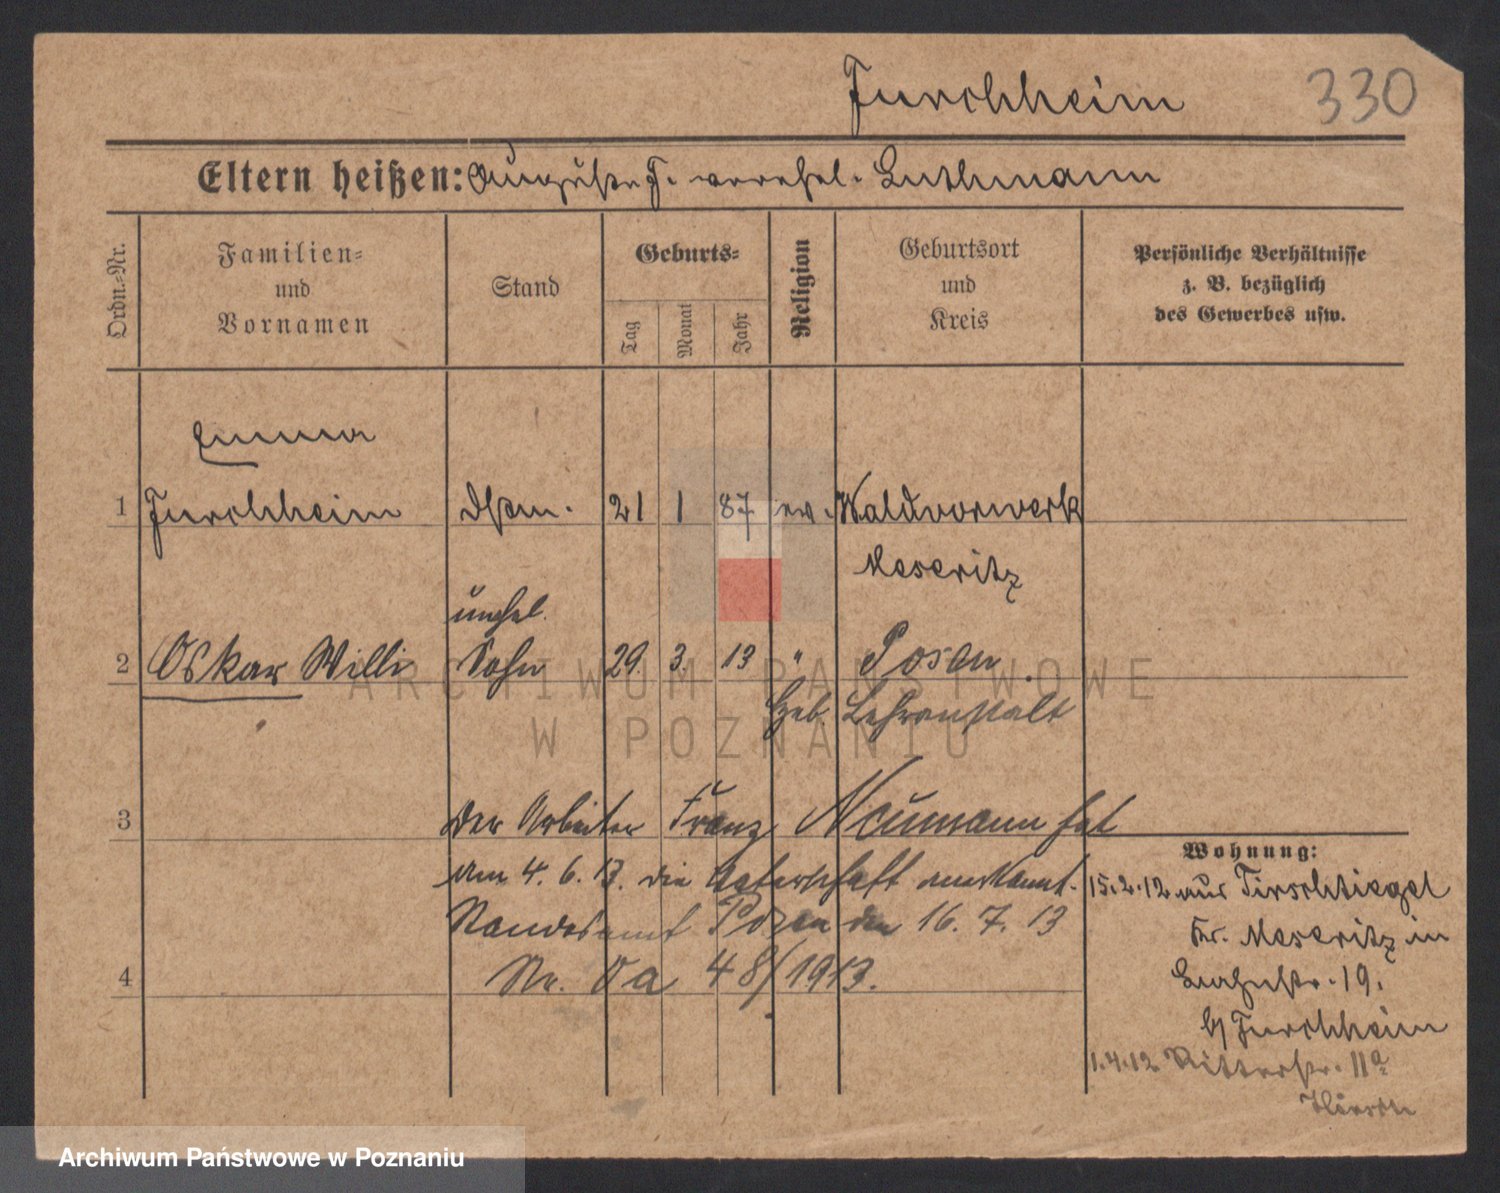 Furchheim 330
Eltern heißen: Auguste F. verehel. Luthmann
Ordn.-Nr.
Familien-
und
Vornamen
Stand
Geburts-
Tag
Monat
Jahr
Religion
Geburtsort
und
Kreis
Persönliche Verhältnisse
z. B. bezüglich
des Gewerbes usw.
Emma
1 Furchheim 21 1 87 ev. Waldvorwerk
Meseritz
unehel.
2 Oskar Willi Sohn 29. 3. 13 " Posen.
Heb. Lehranstalt
3 Der Arbeiter Franz Neumann hat
am 4. 6. 13. die Vaterschaft anerkannt.
Standesamt Posen den 16. 7. 13
4 Nr. 48/1913.
Wohnung:
15.2.12 aus Tirschtiegel
Kr. Meseritz in
19.
b/ Furchheim
1.4.12 Ritterstr. 11a
ARCHIWUM PAŃSTWOWE
W POZNANIU
Archiwum Państwowe w Poznaniu